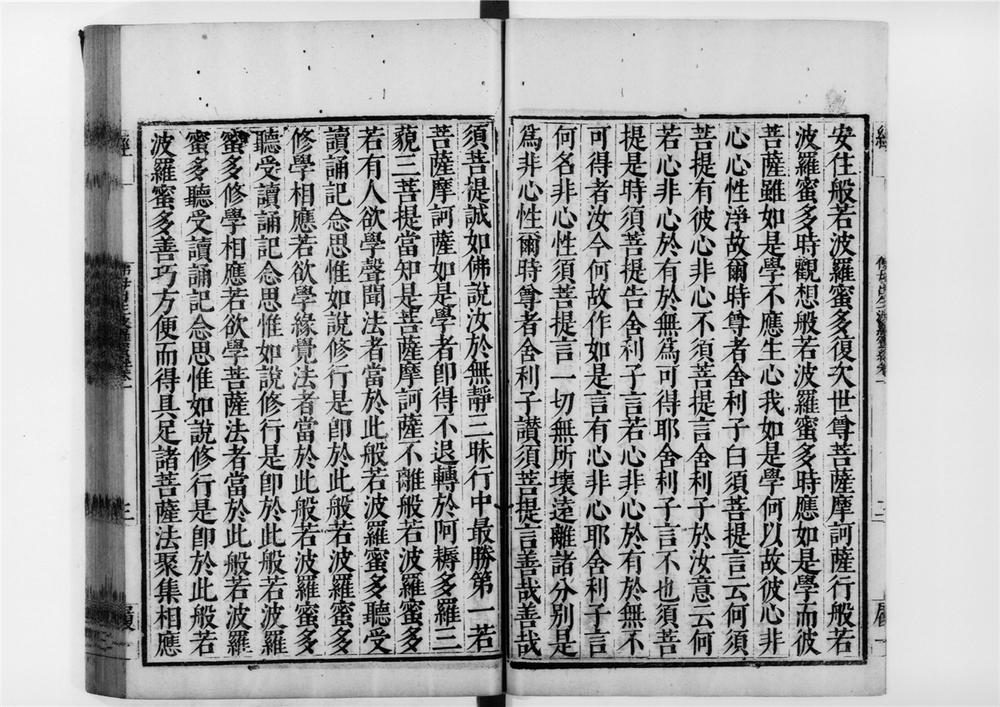 安住般若波羅蜜多復次世尊菩薩摩訶薩行般若
波羅蜜多時觀想般若波羅蜜多時應如是學而彼
菩薩雖如是學不應生心我如是學何以故彼心非
心心性淨故爾時尊者舍利子白須菩提言云何須
菩提有彼心非心不須菩提言舍利子於汝意云何
若心非心於有於無爲可得耶舍利子言不也須菩
提是時須菩提告舍利子言若心非心於有於無不
可得者汝今何故作如是言有心非心耶舍利子言
何名非心性須菩提言一切無所壞遠離諸分別是
爲非心性爾時尊者舍利子讃須菩提言善哉善哉
須菩提誠如佛說汝於無靜三昧行中最勝第一若
菩薩摩訶薩如是學者卽得不退轉於阿耨多羅三
藐三菩提當知是菩薩摩訶薩不離般若波羅蜜多
若有人欲學聲聞法者當於此般若波羅蜜多聽受
讀誦記念思惟如說修行是卽於此般若波羅蜜多
修學相應若欲學緣覺法者當於此般若波羅蜜多
聽受讀誦記念思惟如說修行是卽於此般若波羅
蜜多修學相應若欲學菩薩法者當於此般若波羅
蜜多聽受讀誦記念思惟如說修行是卽於此般若
波羅蜜多善巧方便而得具足諸菩薩法聚集相應
經
三